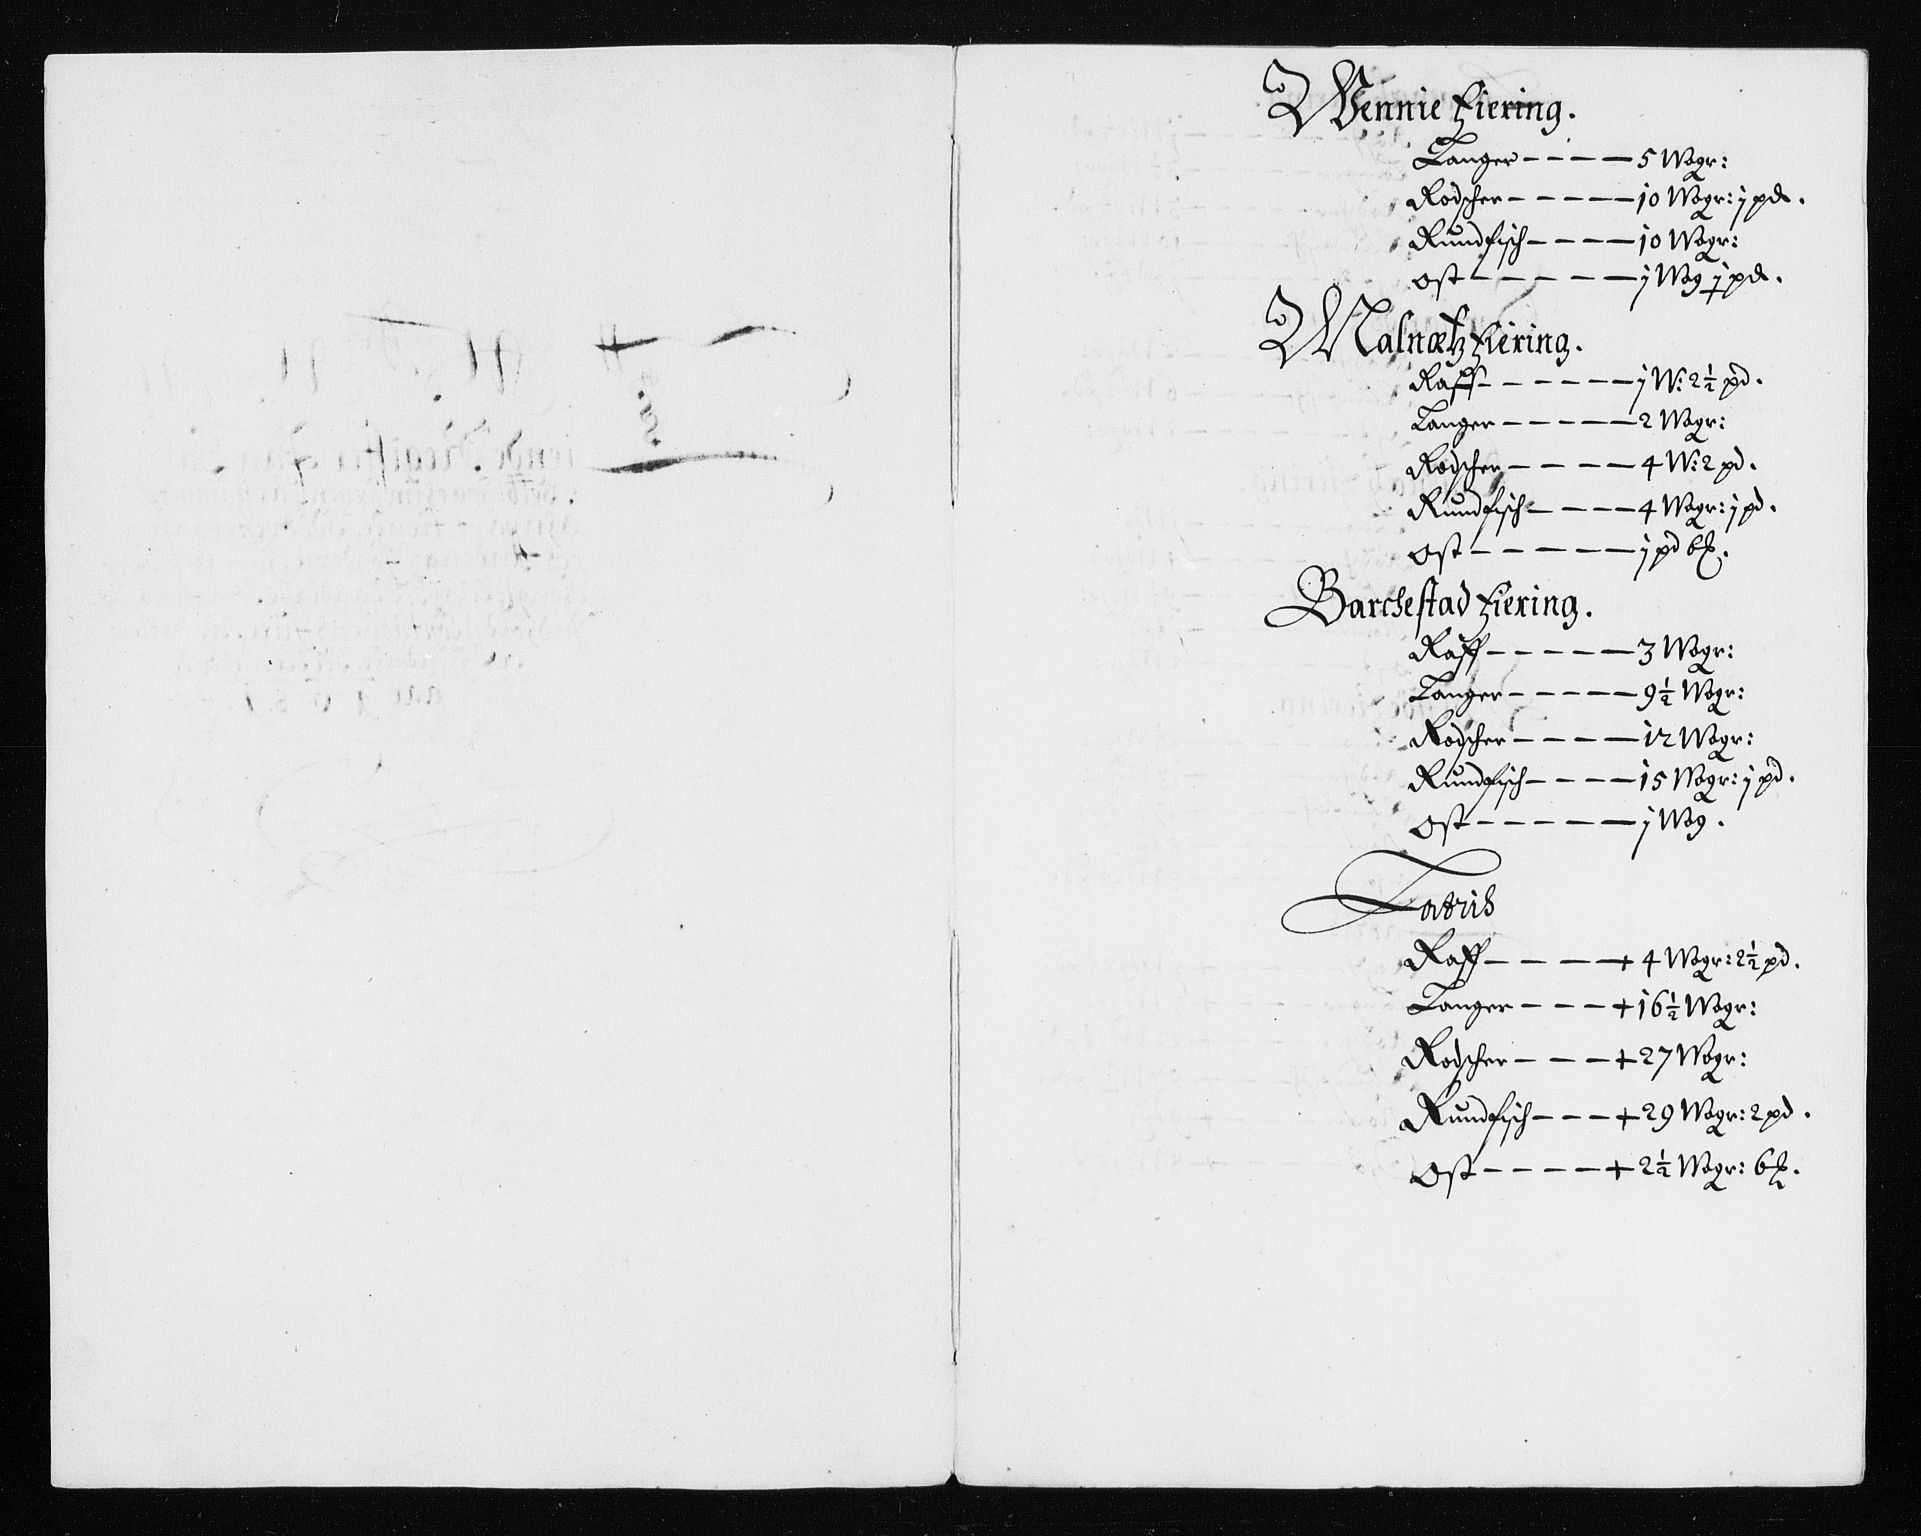 Wennie Fiering.
Langer - - - - 5 Wogr:
Rodscher - - - - - 10 Wogr: j pd.
Rundfisch - - - - 10 Wogr:
Ost - - - - - j Wog j pd.
Malnæs Fiering.
Raff - - - - - - j W: 2½ pd.
Langer - - - - - 2 Wogr:
Rodscher - - - - 4 W: 2 pd.
Rundfisch - - - - 4 Wogr: j pd.
Ost - - - - - - j pd 6
Barchestad Fiering.
Raff - - - - - 3 Wogr:
Langer - - - - - 9½ Wogr:
Rodscher - - - - 12 Wogr:
Rundfisch - - - - 15 Wogr: j pd.
Ost - - - - - - j Wog.
Latris
Raff - - - - + 4 Wogr: 2½ pd.
Langer - - - + 16½ Wogr:
Rodscher - - - + 27 Wogr:
Rundfisch - - - + 29 Wogr: 2 pd.
Ost - - - - + 2½ Wogr: 6